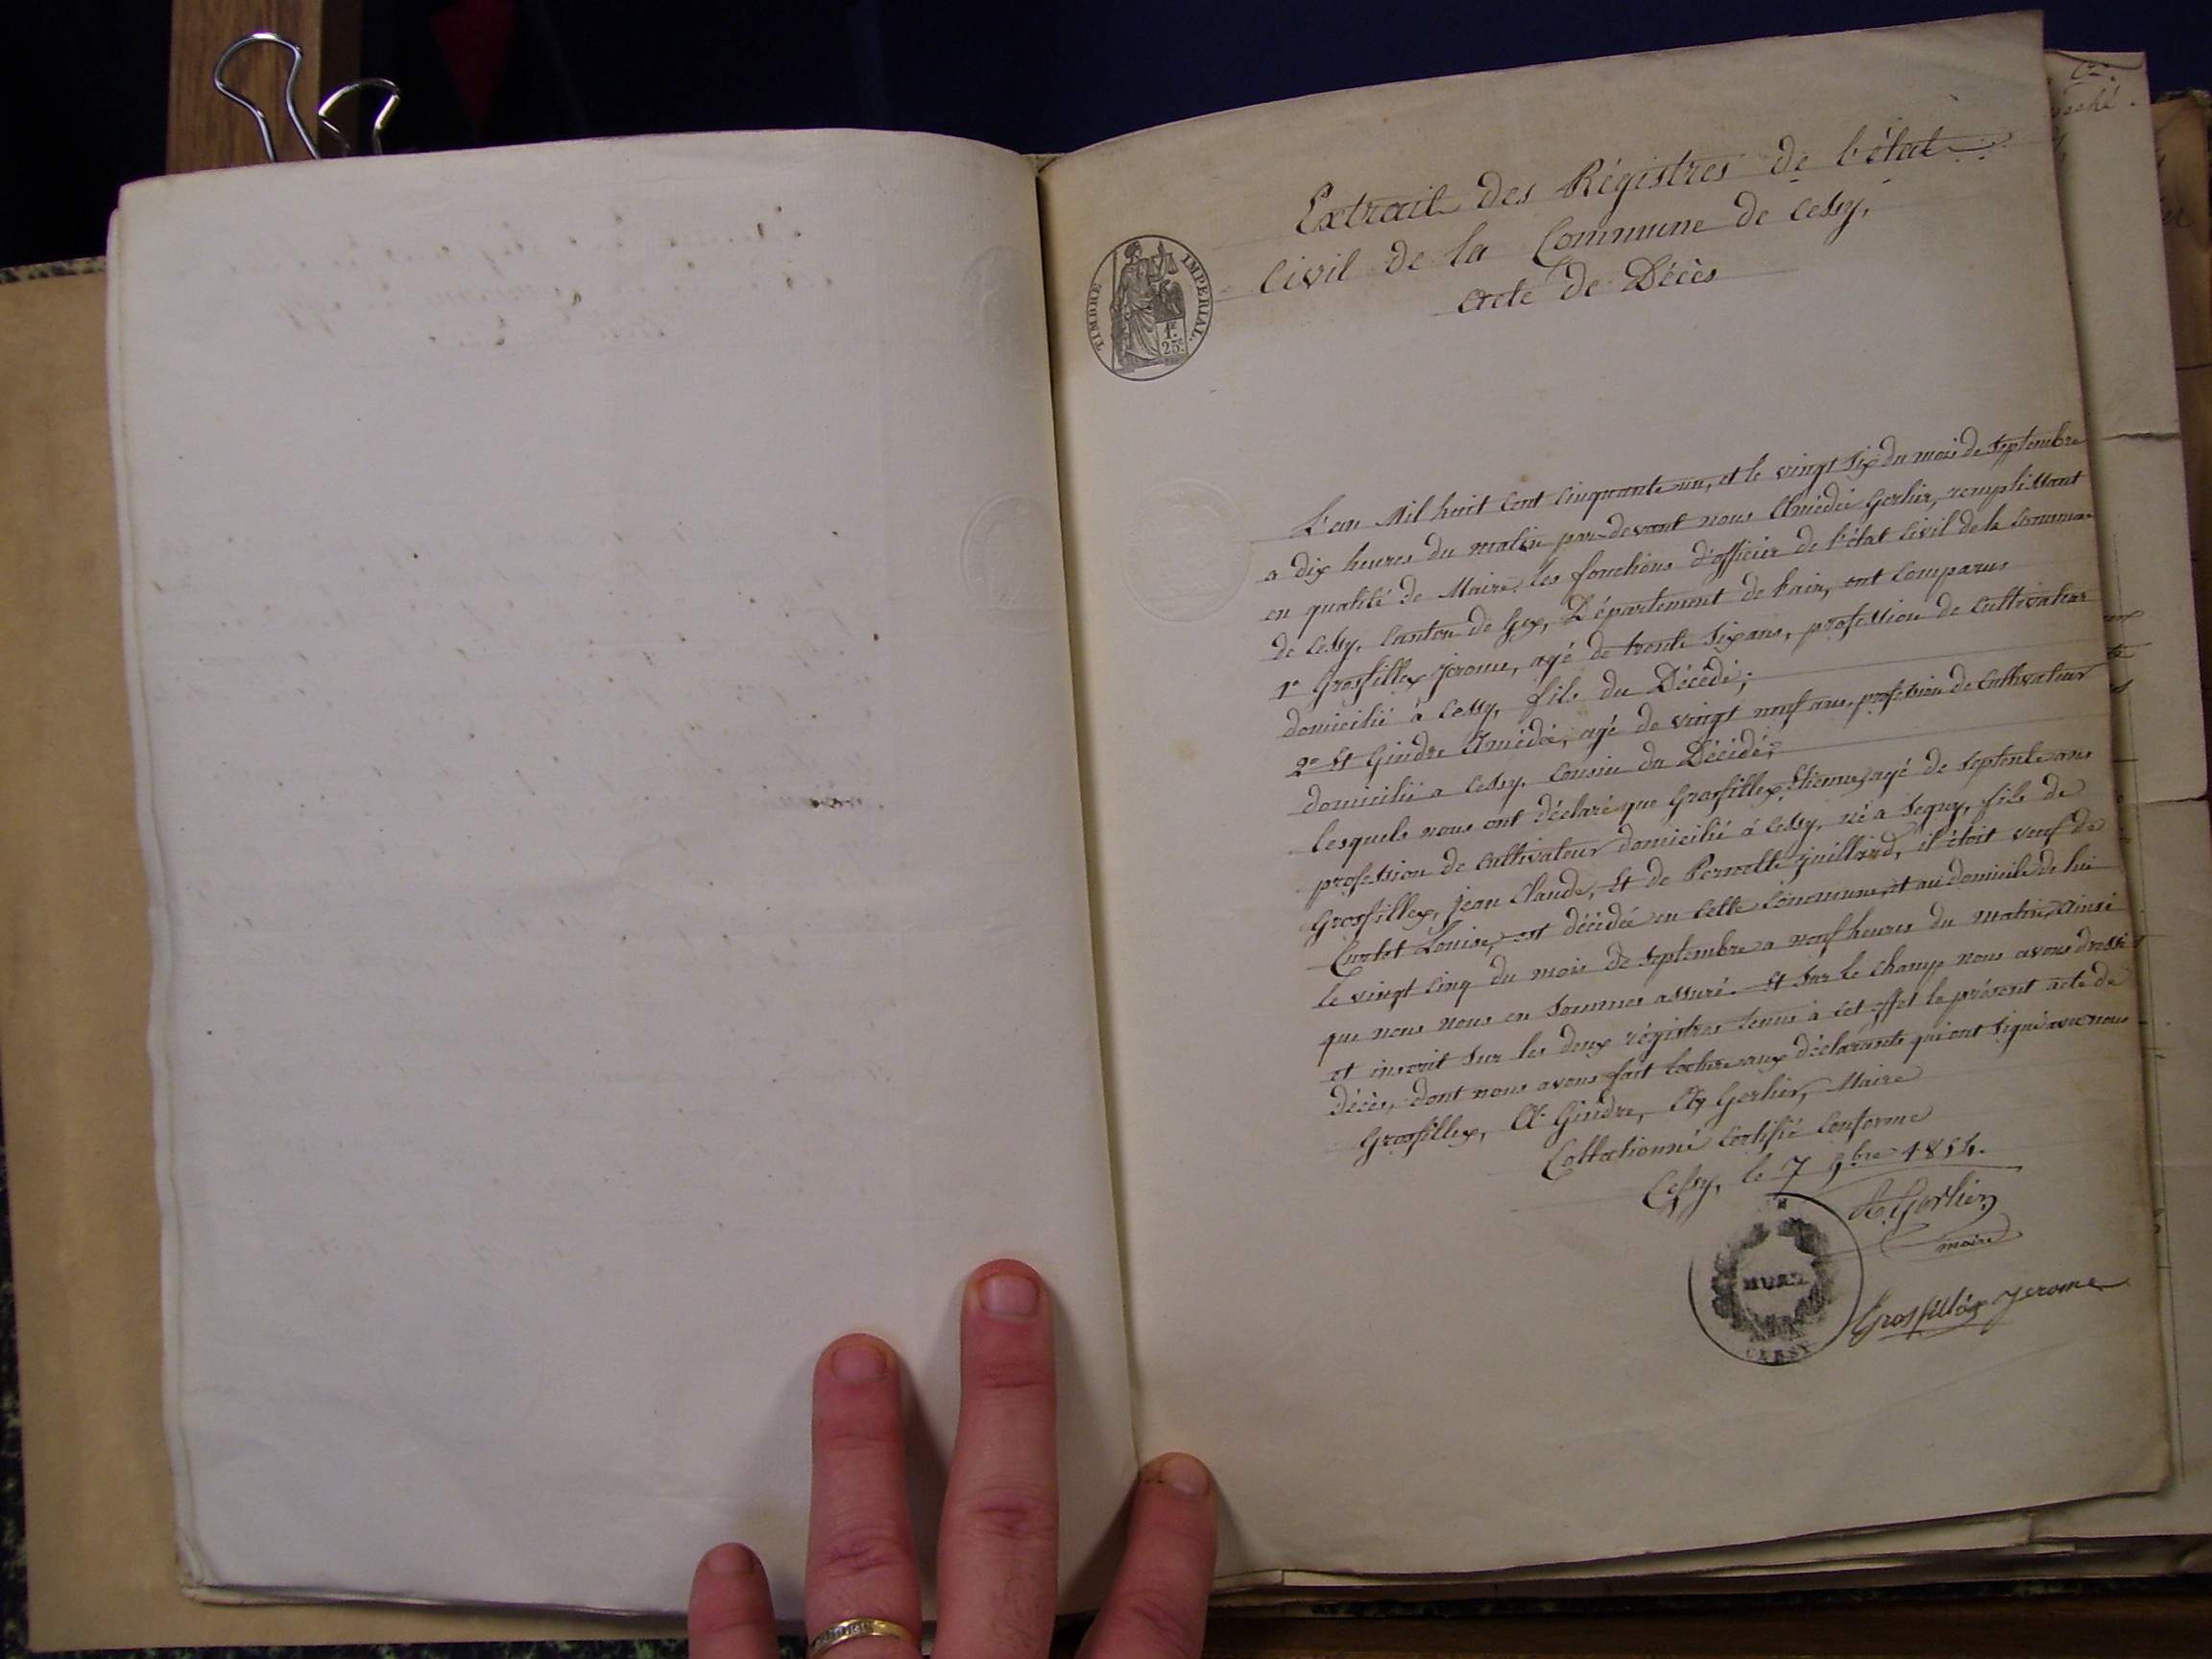 Extrait des Régistres de l'état
Civil de la Commune de Cessy,
acte de Décès
TIMBRE IMPERIAL.
1F
25c
L'an Mil huit Cent Cinquante un, et le vingt Six du mois de Septembre
a dix heures du matin par-devant nous Amédée Gerlier, remplissant
en qualité de Maire, les fonctions d'officier de l'état Civil de la Commune
de Cessy, Canton de Gex, Département de l'ain, ont Comparus
1° Grosfillex Jérome, agé de trente Six ans, profession de Cultivateur
domicilié à Cessy, fils du Décédé;
2° Et Gindre Amédée, agé de vingt neuf ans, profession de Cultivateur
domicilié a Cessy, Cousin du Décédé;
lesquels nous ont déclaré que Grosfillex, Etienne, agé de Septente ans
profession de Cultivateur domicilié à Cessy, né a Segny, fils de
Grosfillex, Jean Claude, Et de Pernette Juillard, il étoit veuf de
Curtet Louise, est décédée en Cette Commune, et au domicile de lui
le vingt Cinq du mois de Septembre a neuf heures du matin, ainsi
que nous nous en Sommes assuré. Et Sur le Champ nous avons dressé
et inscrit Sur les deux régistres tenus à Cet effet le présent acte de
Décès, dont nous avons fait lecture aux déclarants qui ont Signé avec nous
Grosfillex, A. Gindre, A. Gerlier, Maire
Collationné Certifié Conforme
Cessy, le 7 9bre 1854.
A. Gerlier
maire
CESSY
Grosfilléx Jerome